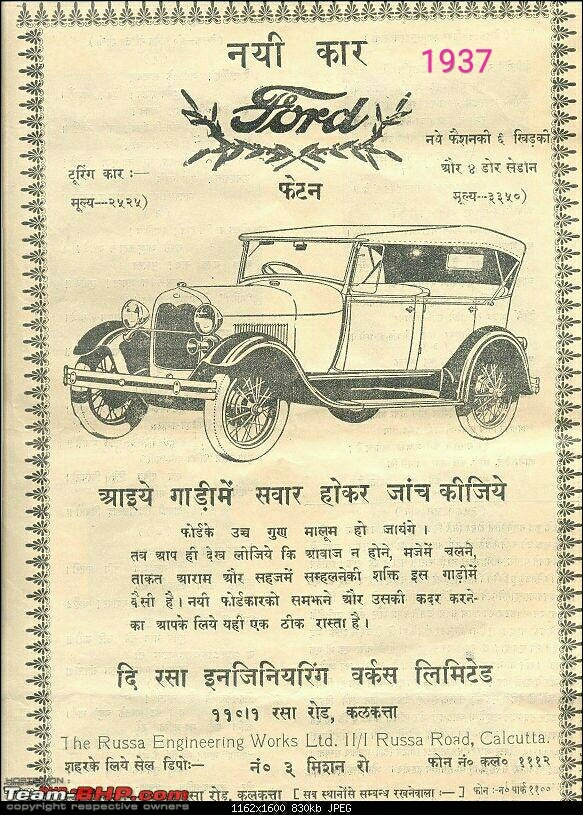 नयी कार
1937
Ford
नये फैशनकी ६ खिड़की
टूरिंग कार :—
और ४ डोर सेडान
मूल्य---२५२५)
फेटन
मूल्य---३३५०)
आइये गाड़ीमें सवार होकर जांच कीजिये
फोर्डके उच्च गुण मालूम हो जायंगे ।
तब आप ही देख लीजिये कि आवाज न होने, मजेमें चलने,
ताकत आराम और सहजमें सम्हलनेकी शक्ति इस गाड़ीमें
कैसी है । नयी फोर्डकारको समझने और उसकी कदर करने-
का आपके लिये यही एक ठीक रास्ता है ।
दि रसा इनजिनियरिंग वर्कस लिमिटेड
११०/१ रसा रोड, कलकत्ता
The Russa Engineering Works Ltd. 11/1 Russa Road, Calcutta.
शहरके लिये सेल डिपोः—
नं० ३ मिशन रो
फोन नं० कल० १११२
HOSTED ON :
Team-BHP.com
रसा रोड, कलकत्ता [ सब स्थानोंसे सम्बन्ध रखनेवाला :— ] फोन :-नं० पार्क ११००
copyright respective owners
1162x1600 830kb JPEG